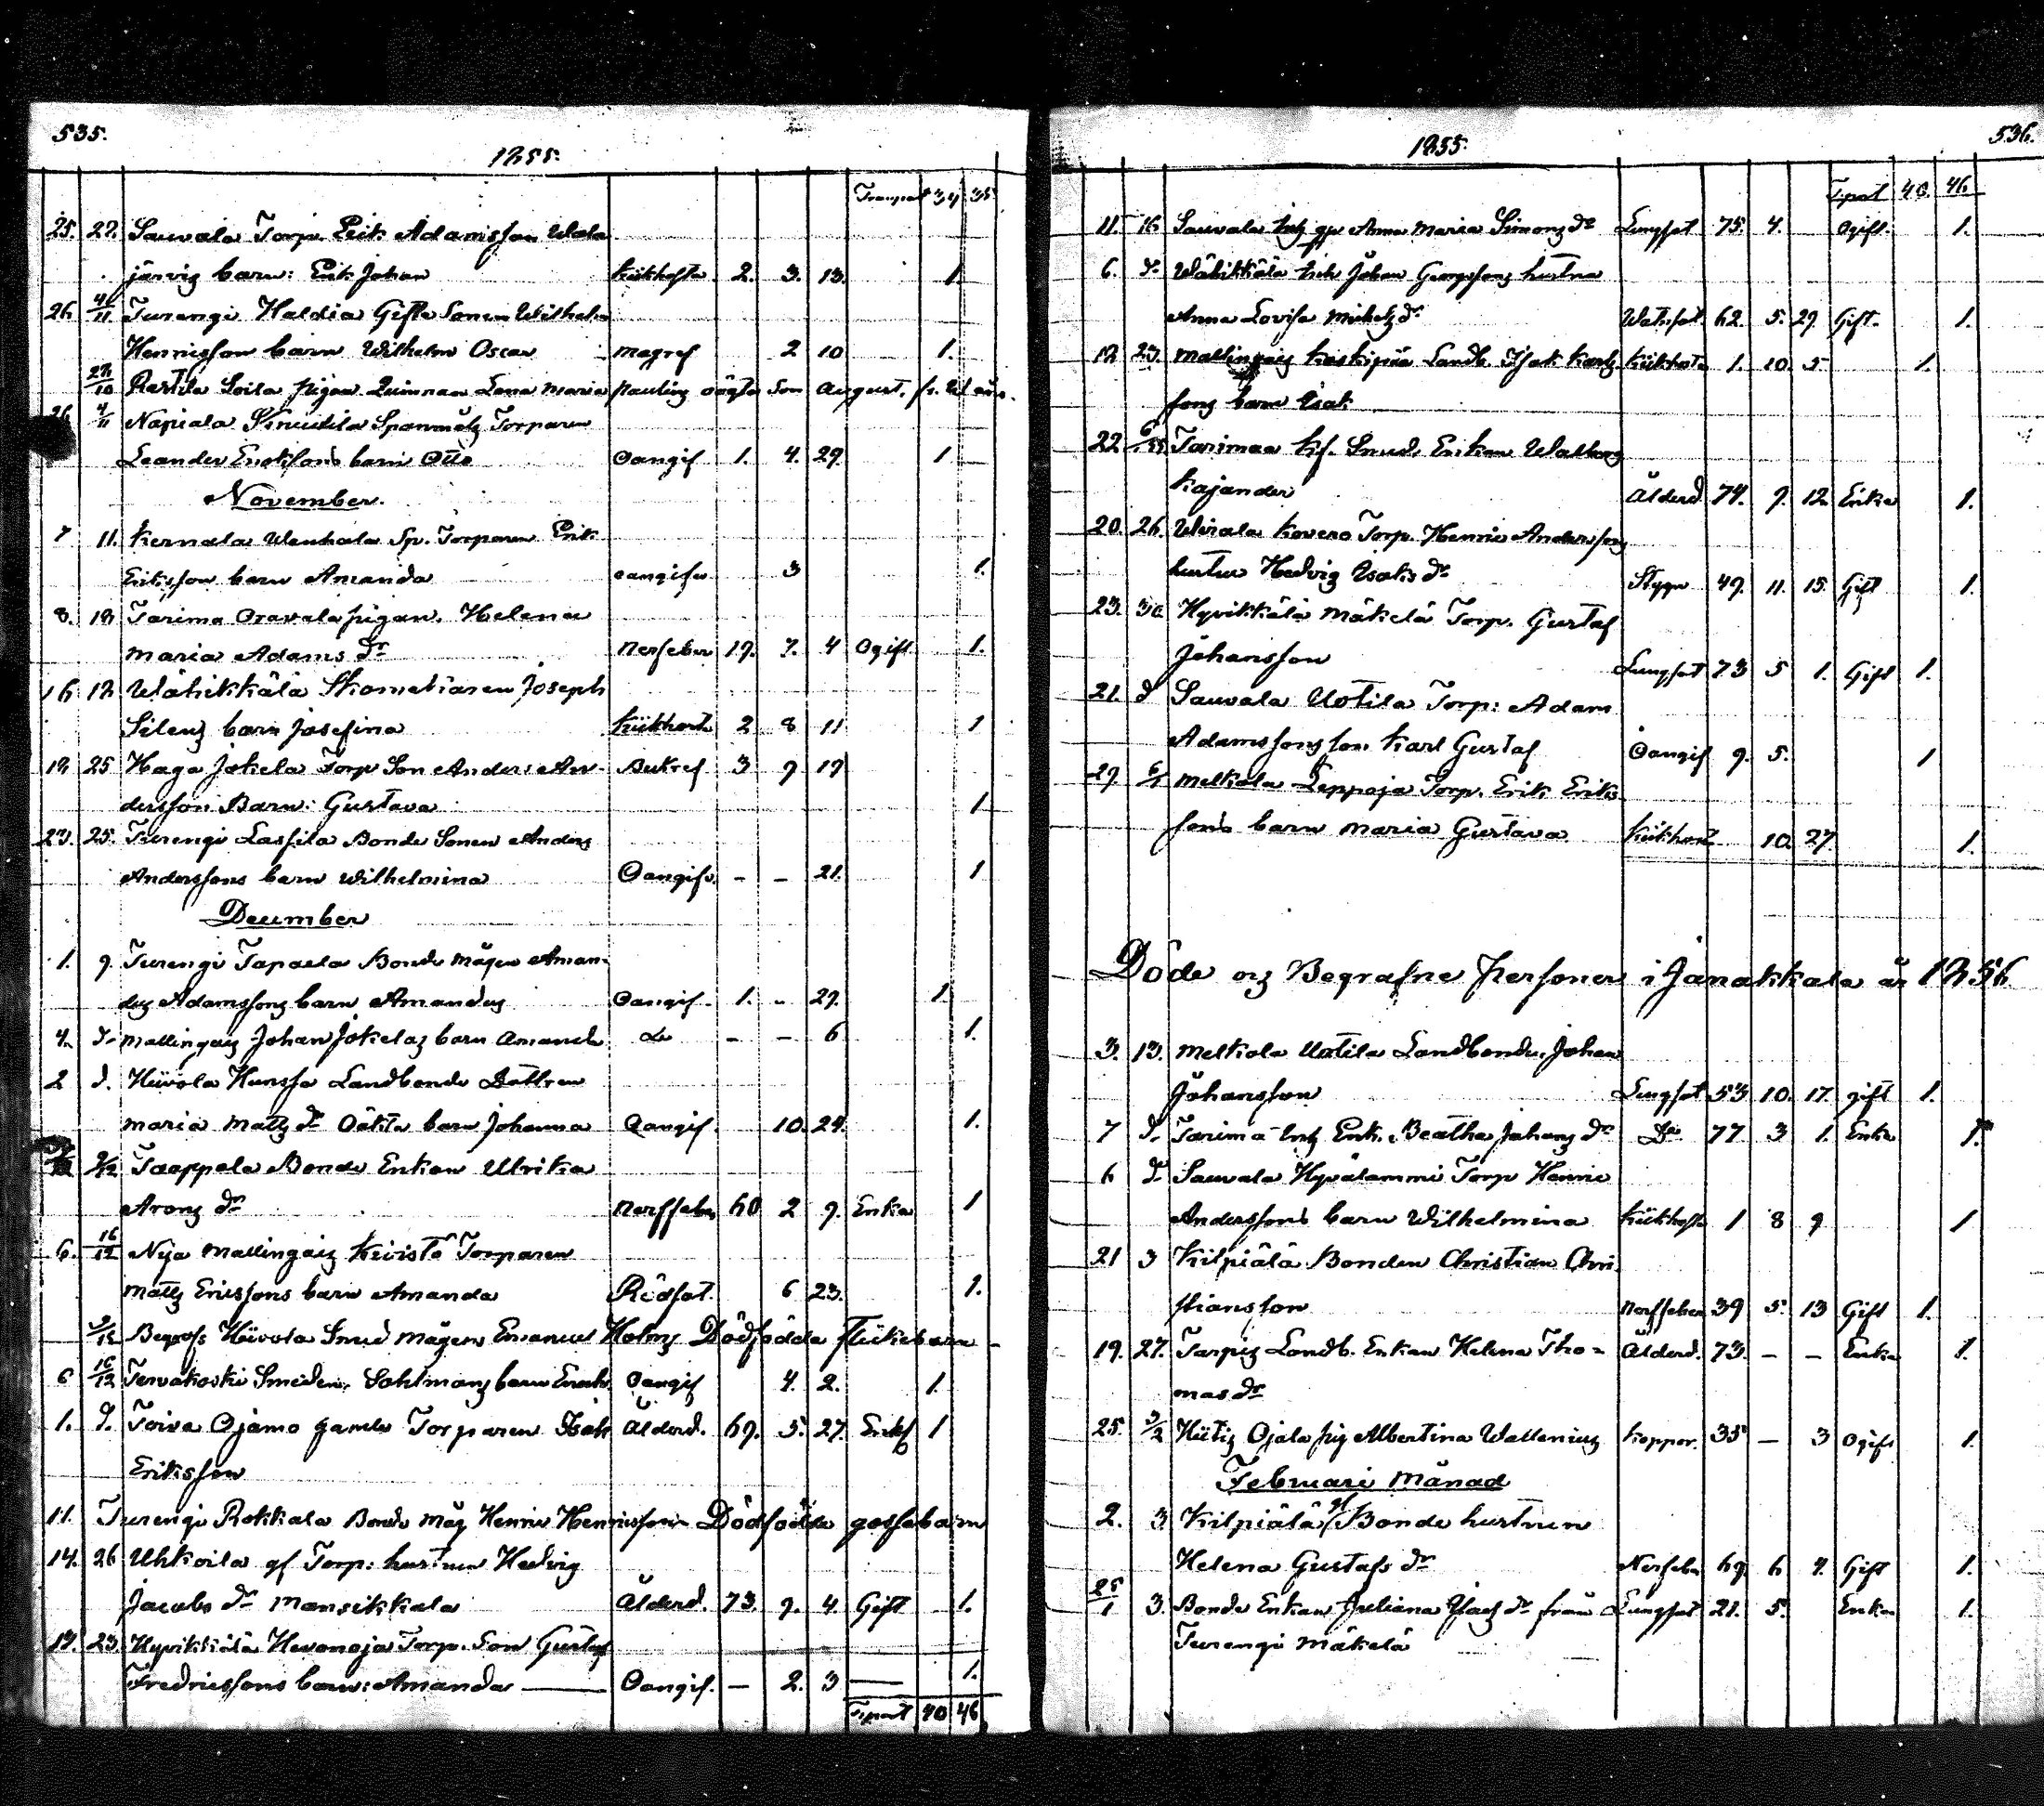 535.
1855.
Transport 34 35
25. 27. Sauvala Torp. Erik Adamsson Wala
järvis barn: Erik Johan Kikhosta 2. 3. 13. 1.
26 4/11 Turengi Haldia Gifte Sonen Wilhelm
Henrisson barn Wilhelm Oscar magref 2 10 1.
28/10 Rastila Soila pigan Quinnan Lena Maria Pauling oägta Son August
26 4/11 Napiala Knuutila Spanmåls Torparen
Leander Erikssons barn Otto Oangif 1. 4. 29. 1
November.
7 11. Kernala Wanhala Sp. Torparen Erik
Eriksson barn Amanda oangifv 3 1.
8. 18 Tarima Oravala pigan. Helena
Maria Adams dr Nerfeber 19. 7. 4 Ogift 1.
16 18 Wähikkälä Skomakaren Joseph
Silens barn Josefina Kikhosta 2 8 11 1
18 25 Haga Jokela Torp Son Anders An-
dersson Barn: Gustava Betref 3 9 19 1
23. 25. Turengi Lassila Bonde Sonen Anders
Anderssons barn Wilhelmina Oangifv. - - 21. 1
December
1. 9. Turengi Tapaela Bonde mågen Aman-
dus Adamssons barn Amandus Oangif. 1. - 29. 1.
4. d. Mallingais Johan Jokelas barn Amanda do - - 6 1.
2 d. Hiivola Hunsha Landbonde Dottren
Maria Matts dr Oäkta barn Johanna Oangif. 10. 24. 1.
9/12 Taappala Bonde Enkan Ulrika
Arons dr Nerffeber 60 2 9. Enka 1
6. 16/12 Nya Mallingais Kivistö Torparen
Matts Erissons barn Amanda Rödsot. 6 23. 1.
9/12 Begrofs Hiivola Smed Mågen Emanuel Holms Dödfödda flickebarn -
6 16/12 Tervakoski Smeden Sohlmans barn Enoch Oangif 4. 2. 1.
1. d. Toiva Ojamo gamle Torparen Isak Ålderd. 69. 5. 27. Enkl 1
Eriksson
11. Turengi Rokkala Bonde Måg Henric Henricsson Dödfödda gossebarn
14. 26 Uhkoila gl Torp: hustrun Hedvig
Jacobs dr Mansikkala Ålderd. 73. 9. 4. Gift 1.
19. 23. Hyvikkälä Hevonoja Torp. Son Gustaf
Fredricssons barn: Amanda Oangif. - 2. 3 - 1.
Tsport 40 46
536.
1855.
Tsport 40. 46.
11. 16 Sauvala Inhs gu Anna Maria Simons dr Lungsot 75. 4. Ogift. 1.
6. do Wähikkälä Inh Johan Georgssons hustru
Anna Lovisa Michels dr Watusot 62. 5. 29. Gift. 1.
12 23. Mallingais Koskipää Landb. Isak Karls Kikhosta 1. 10. 5 1.
sons barn Isak
22. 6/1 Tarimaa Kf. Smeds Enkan Walborg
Kajander Ålderd 74. 9. 12 Enka 1.
20. 26. Wirala Kovero Torp. Henric Anderssons
hustru Hedvig Isaks dr Styggn 49. 11. 15 Gift 1.
23. 30 Hyvikkälä Mäkelä Torp. Gustaf
Johansson Lungsot 73 5 1. Gift 1.
21. d Sauvala Uotila Torp: Adam
Adamssons son Karl Gustaf Oangif 9. 5. 1
29. 6/1 Melkola Leppoja Torp. Erik Eriks
sons barn Maria Gustava Kikhost 10. 27 1.
Döde och Begrafne Personer i Janakkala år 1856
3. 13. Melkola Uotila Landbonde Johan
Johansson Lungsot 53 10. 17. gift 1.
7 d. Tarima Inhs Enk. Beatha Johans dr Do 77 3 1. Enka 1.
6 d. Sauvala Hyvälammi Torp Henric
Anderssons barn Wilhelmina Kikhosta 1 8 9 1
21 3 Kilpiälä Bonden Christian Chri-
stiansson Nerffeber 39 5. 13 Gift 1.
19. 27. Tarpis Landb. Enkan Helena Tho- Ålderd. 73. - - Enka 1.
mas dr
25. 3/2 Hiitis Ojala pig Albertina Wallenius Koppor. 35 - 3 Ogift 1.
Februari Månad
2. 3 Kilpiälä gl Bonde hustrun
Helena Gustafs dr Nerfeber 69. 6 4. Gift 1.
25/1 3. Bonde Enkan Juliana Isacs dr från Lungsot 21. 5. Enka 1.
Turengi Mäkelä